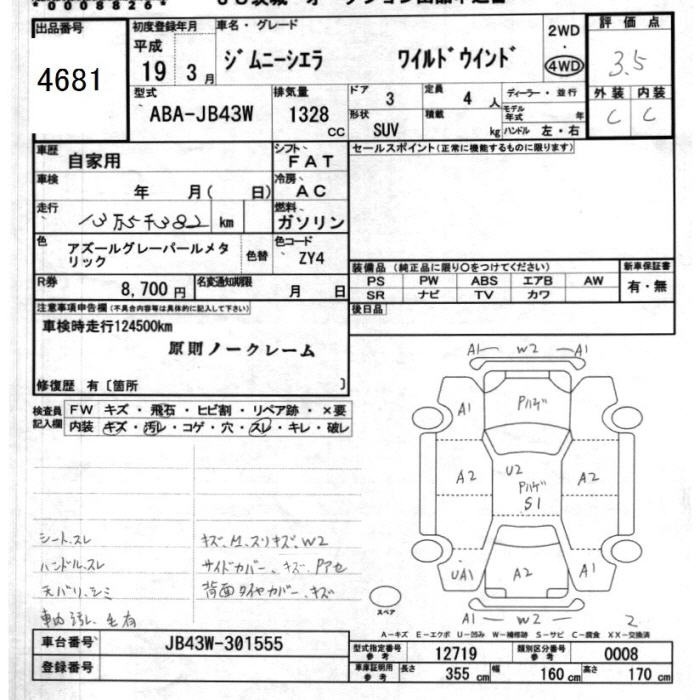 *0008826*
出品番号
4681
初度登録年月
平成
19 3月
車名・グレード
ジムニーシエラ ワイルドウインド
2WD
・
4WD
評価点
3.5
型式
ABA-JB43W
排気量
1328
CC
ドア
3
定員
4人
形状
SUV
積載
kg
ディーラー・並行
モデル年式 年
ハンドル 左・右
外装 内装
C C
車歴
自家用
シフト
FAT
セールスポイント(正常に機能するものに限ります)
車検
年 月( 日)
冷房
AC
走行
13万5千382 km
燃料
ガソリン
色
アズールグレーパールメタ
リック
色替
色コード
ZY4
装備品(純正品に限り○をつけてください)
PS PW ABS エアB AW
SR ナビ TV カワ
新車保証書
有・無
R券
8,700円
名変通知期限
月 日
後日品
注意事項申告欄(不具合内容等は具体的に記入して下さい)
車検時走行124500km
原則ノークレーム
修復歴 有〔箇所 〕
検査員
記入欄
FW キズ・飛石・ヒビ割・リペア跡・×要
内装 キズ・汚レ・コゲ・穴・スレ・キレ・破レ
A1 W2 A1
A1 Pハゲ A1
A2 U2 Pハゲ S1 A2
UA1 A2 A1
A1 W2 A1
2
スペア
シート.スレ
ハンドル.スレ
天バリ.シミ
車内汚レ.毛有
サイドカバー.キズ.Pアセ
背面タイヤカバー.キズ
A-キズ E-エクボ U-凹み W-補修跡 S-サビ C-腐食 XX-交換済
車台番号
JB43W-301555
登録番号
型式指定番号
参考
12719
類別区分番号
参考
0008
車庫証明用
参考
長さ 355cm
幅 160cm
高さ 170cm